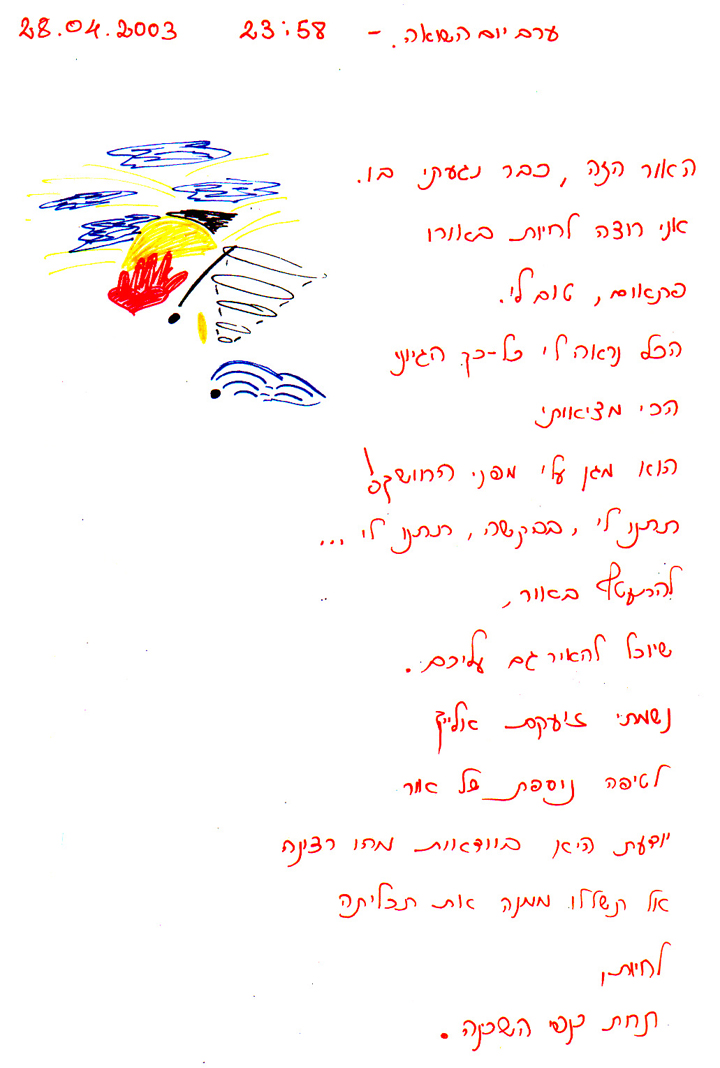 28.04.2003 23:58 - ערב יום השואה.
האור הזה, כבר נגעתי בו.
אני רוצה לחיות באורו
פתאום, טוב לי.
הכל נראה לי כל-כך הגיוני
הכי מציאותי
הוא מגן עלי מפני החושך!
תתנו לי, בבקשה, תתנו לי ...
להתעטף באור,
שיוכל להאיר גם עליכם.
נשמתי זועקת אלייך
לטיפה נוספת של אור
יודעת היא בוודאות מהו רצינה
אל תשללו ממנה את תכליתה
לחיות,
תחת כנפי השכינה.